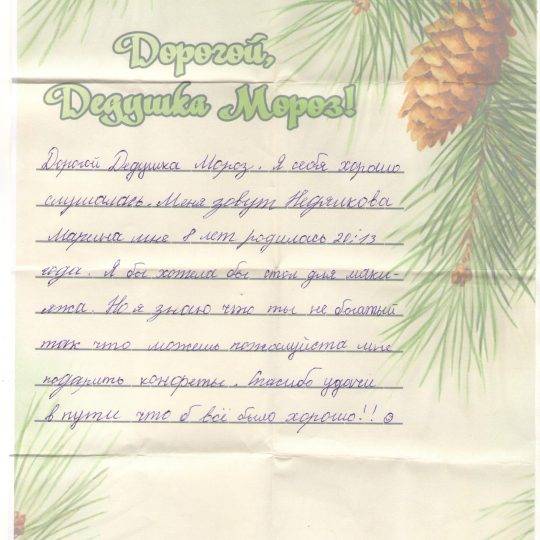 Дорогой,
Дедушка Мороз!
Дорогой Дедушка Мороз. Я себя хорошо
слушалась. Меня зовут Недялкова
Марина мне 8 лет родилась 2013
года. Я бы хотела бы стол для маки-
яжа. Но я знаю что ты не богатый
так что можешь пожалуйста мне
подарить конфеты. Спасибо удачи
в пути что б всё было хорошо!! ☺